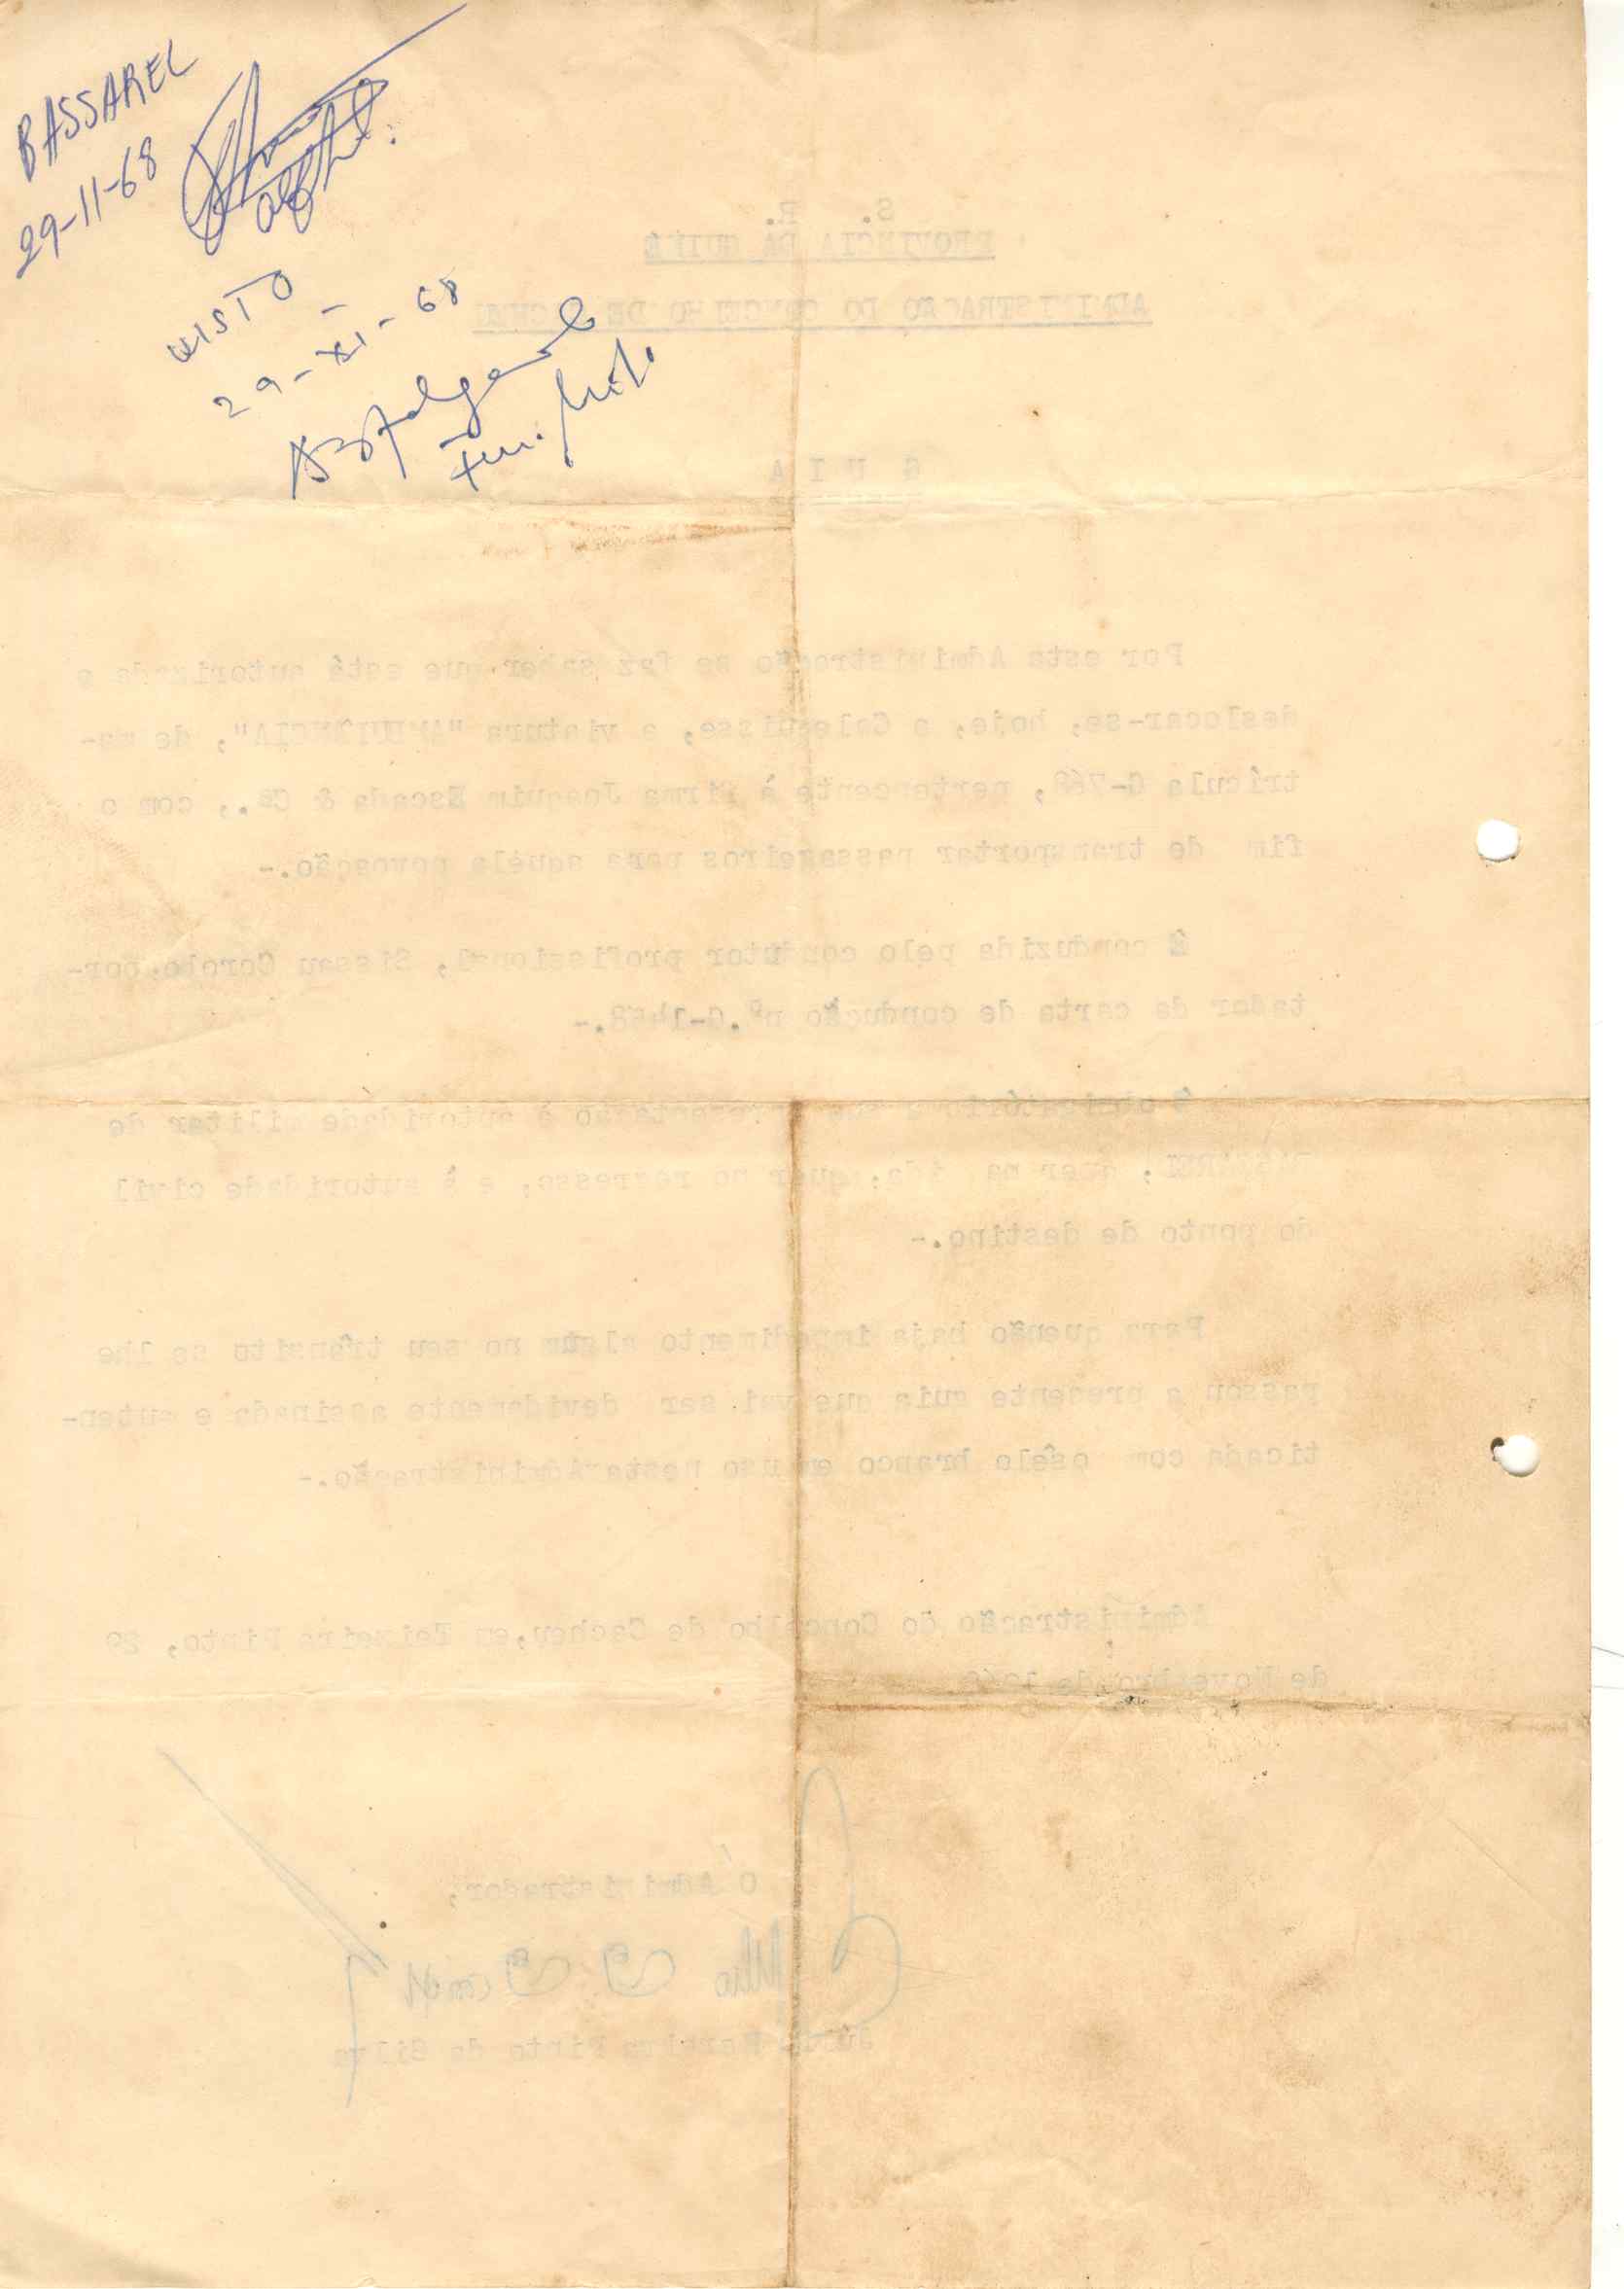 BASSAREL
29-11-68
VISTO
29-XI-68
S. R.
PROVINCIA DA GUINÉ
ADMINISTRAÇÃO DO CONCELHO DE CACHEU
G U I A
Por esta Administração se faz saber que está autorizada a
deslocar-se, hoje, a Calequisse, a viatura de ma-
trícula pertencente à Firma Joaquim Escada & Cª., com o
fim de transportar passageiros para aquela povoação.-
É conduzida pelo condutor profissional, Sissau Corolo, por-
tador da carta de condução nº.G-1458.-
É obrigatório a sua apresentação à autoridade militar de
quer na ida, quer no regresso, e à autoridade civil
do ponto de destino.-
Para quenão haja impedimento algum no seu trânsito se lhe
passou a presente guia que vai ser devidamente assinada e auten-
ticada com osêlo branco em uso nesta Administração.-
Administração do Concelho de Cacheu,em Teixeira Pinto, 29
de Novembro de 1968
O Administrador,
Pinto da Silva